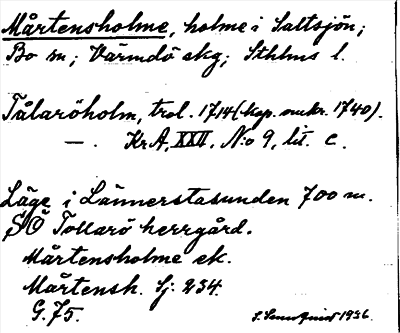 Mårtensholme, holme i Saltsjön;
Bo sn; Värmdö skg; Sthlms l.
Tålaröholm, trol. 1714 (kop. omkr. 1740).
— . KrA, XXII, N:o 9, lit. c.
Läge i Lännerstasunden 700 m.
SÖ Tollarö herrgård.
Mårtensholme ek.
Mårtensh. Sj: 234.
G. 75.
1936.